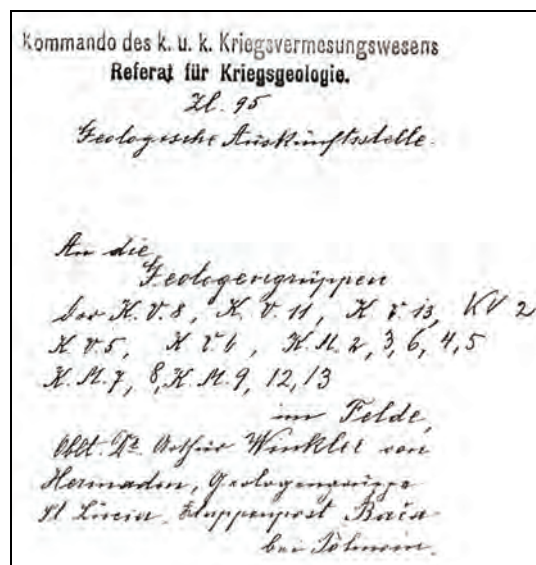 Kommando des k. u. k. Kriegsvermesungswesens
Referat für Kriegsgeologie.
Zl. 95
Geologische Auskunftsstelle.
An die
Geologengruppen
der K.V. 8, K.V. 11, K.V. 13, KV 2
K.V. 5, K.V. 6, K.M. 2, 3, 6, 4, 5
K.M. 7, 8, K.M. 9, 12, 13
im Felde,
Oblt. Dr. Arthur Winkler von
Hermaden, Geologengruppe
St Lucia. Etappenpost Bača
bei Tolmein.